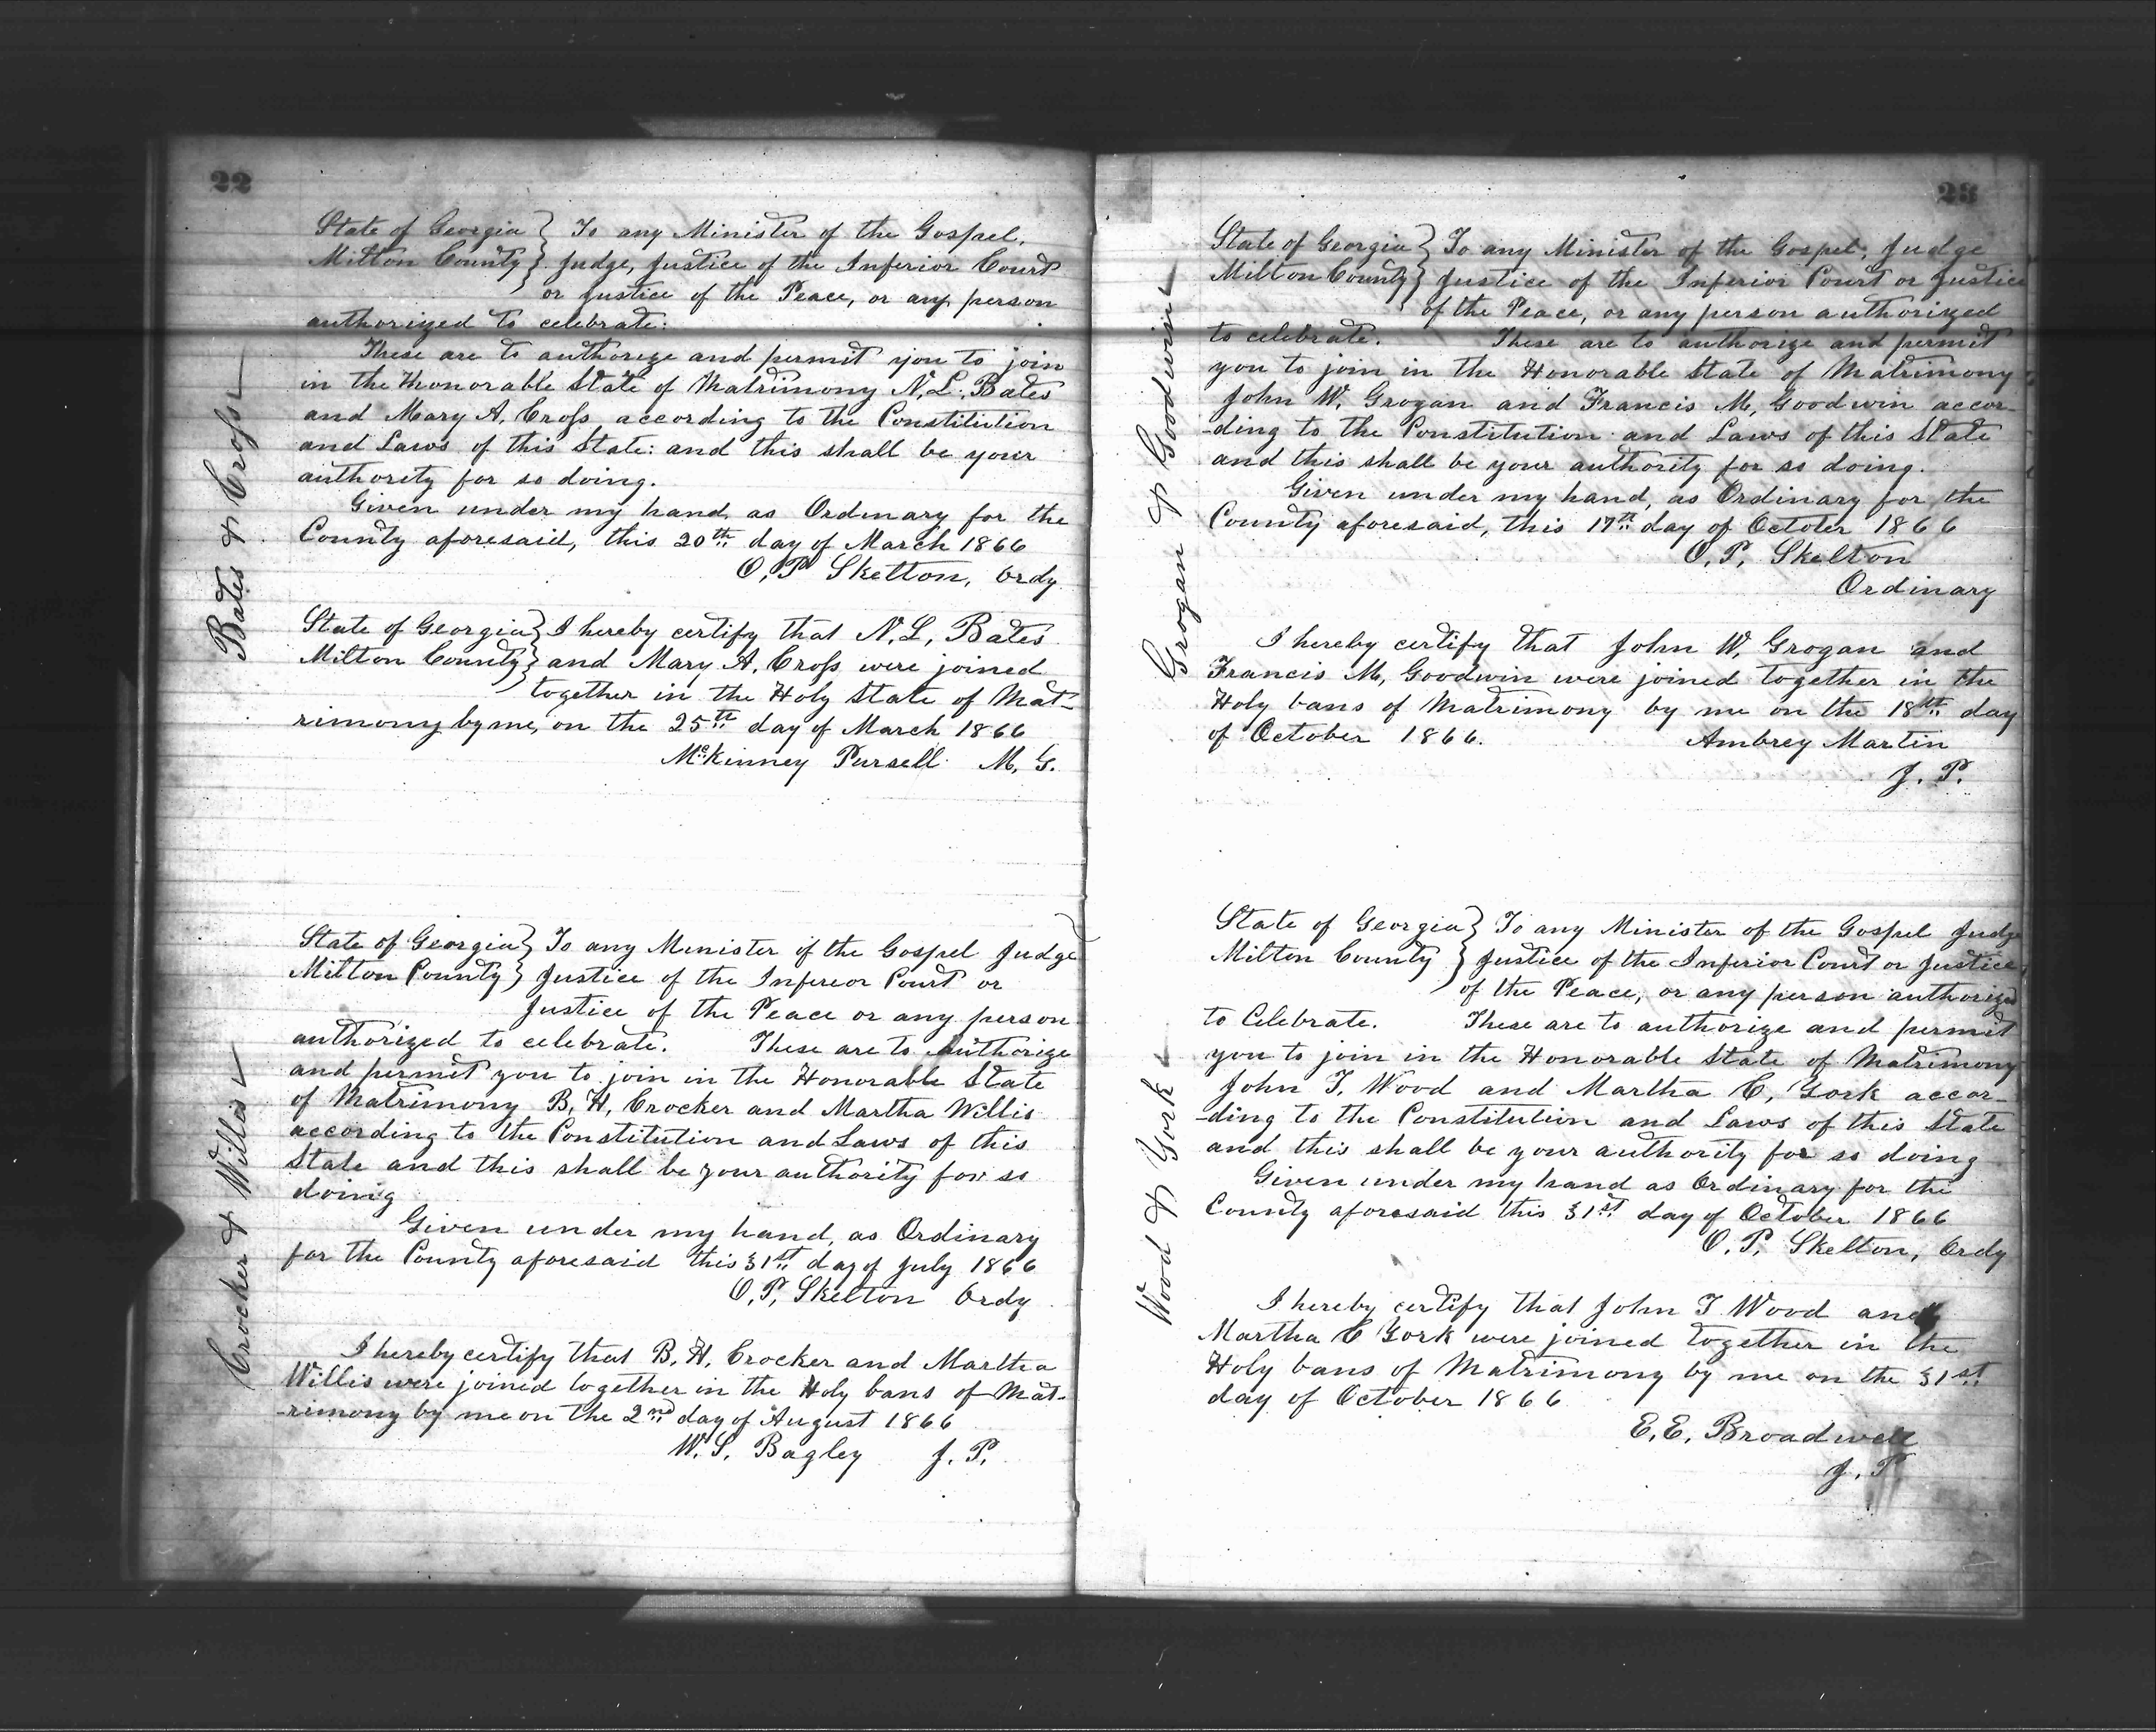 22
Bates & Cross
State of Georgia } To any Minister of the Gospel,
Milton County } Judge, Justice of the Inferior Court
or Justice of the Peace, or any person
authorized to celebrate:
These are to authorize and permit you to join
in the Honorable State of Matrimony N. L. Bates
and Mary A. Cross according to the Constitution
and Laws of this State: and this shall be your
authority for so doing.
Given under my hand as Ordinary for the
County aforesaid, this 20th day of March 1866
O. P. Skelton, Ordy
State of Georgia } I hereby certify that N. L. Bates
Milton County } and Mary A. Cross were joined
together in the Holy State of Mat-
rimony by me, on the 25th day of March 1866
McKinney Pursell M. G.
Crocker & Willis
State of Georgia } To any Minister of the Gospel Judge
Milton County } Justice of the Inferior Court or
Justice of the Peace or any person
authorized to celebrate. These are to authorize
and permit you to join in the Honorable State
of Matrimony B. H. Crocker and Martha Willis
according to the Constitution and Laws of this
State and this shall be your authority for so
doing
Given under my hand, as Ordinary
for the County aforesaid this 31st day of July 1866
O. P. Skelton Ordy
I hereby certify that B. H. Crocker and Martha
Willis were joined together in the Holy bans of Mat-
-rimony by me on the 2nd day of August 1866
W. S. Bagley J. P.
23
Grogan & Goodwin
State of Georgia } To any Minister of the Gospel, Judge
Milton County } Justice of the Inferior Court or Justice
of the Peace, or any person authorized
to celebrate. These are to authorize and permit
you to join in the Honorable State of Matrimony
John W. Grogan and Francis M. Goodwin accor-
-ding to the Constitution and Laws of this State
and this shall be your authority for so doing.
Given under my hand, as Ordinary for the
County aforesaid, this 17th day of October 1866
O. P. Skelton
Ordinary
I hereby certify that John W. Grogan and
Francis M. Goodwin were joined together in the
Holy bans of Matrimony by me on the 18th day
of October 1866. Ambrey Martin
J. P.
Wood & York
State of Georgia } To any Minister of the Gospel Judge
Milton County } Justice of the Inferior Court or Justice
of the Peace, or any person authorized
to Celebrate. These are to authorize and permit
you to join in the Honorable State of Matrimony
John T. Wood and Martha C. York accor-
-ding to the Constitution and Laws of this State
and this shall be your authority for so doing
Given under my hand as Ordinary for the
County aforesaid this 31st day of October 1866
O. P. Skelton, Ordy
I hereby certify that John T Wood and
Martha C York were joined together in the
Holy bans of Matrimony by me on the 31st
day of October 1866
E. E. Broadwell
J. P